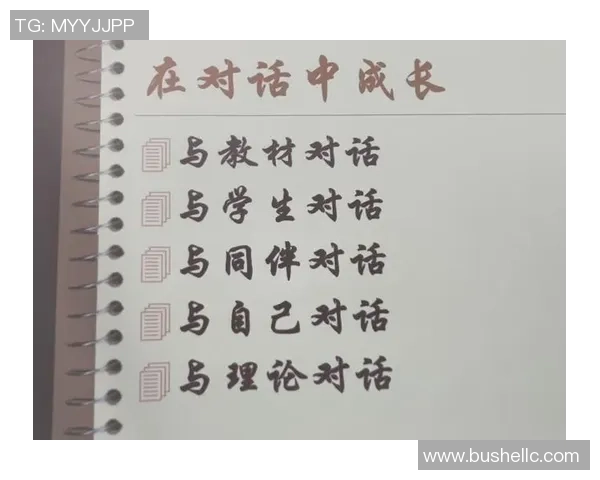 TG: MYYJJPP
在对话中成长
与教材对话
与学生对话
与同伴对话
与自己对话
与理论对话
www.bushellc.com